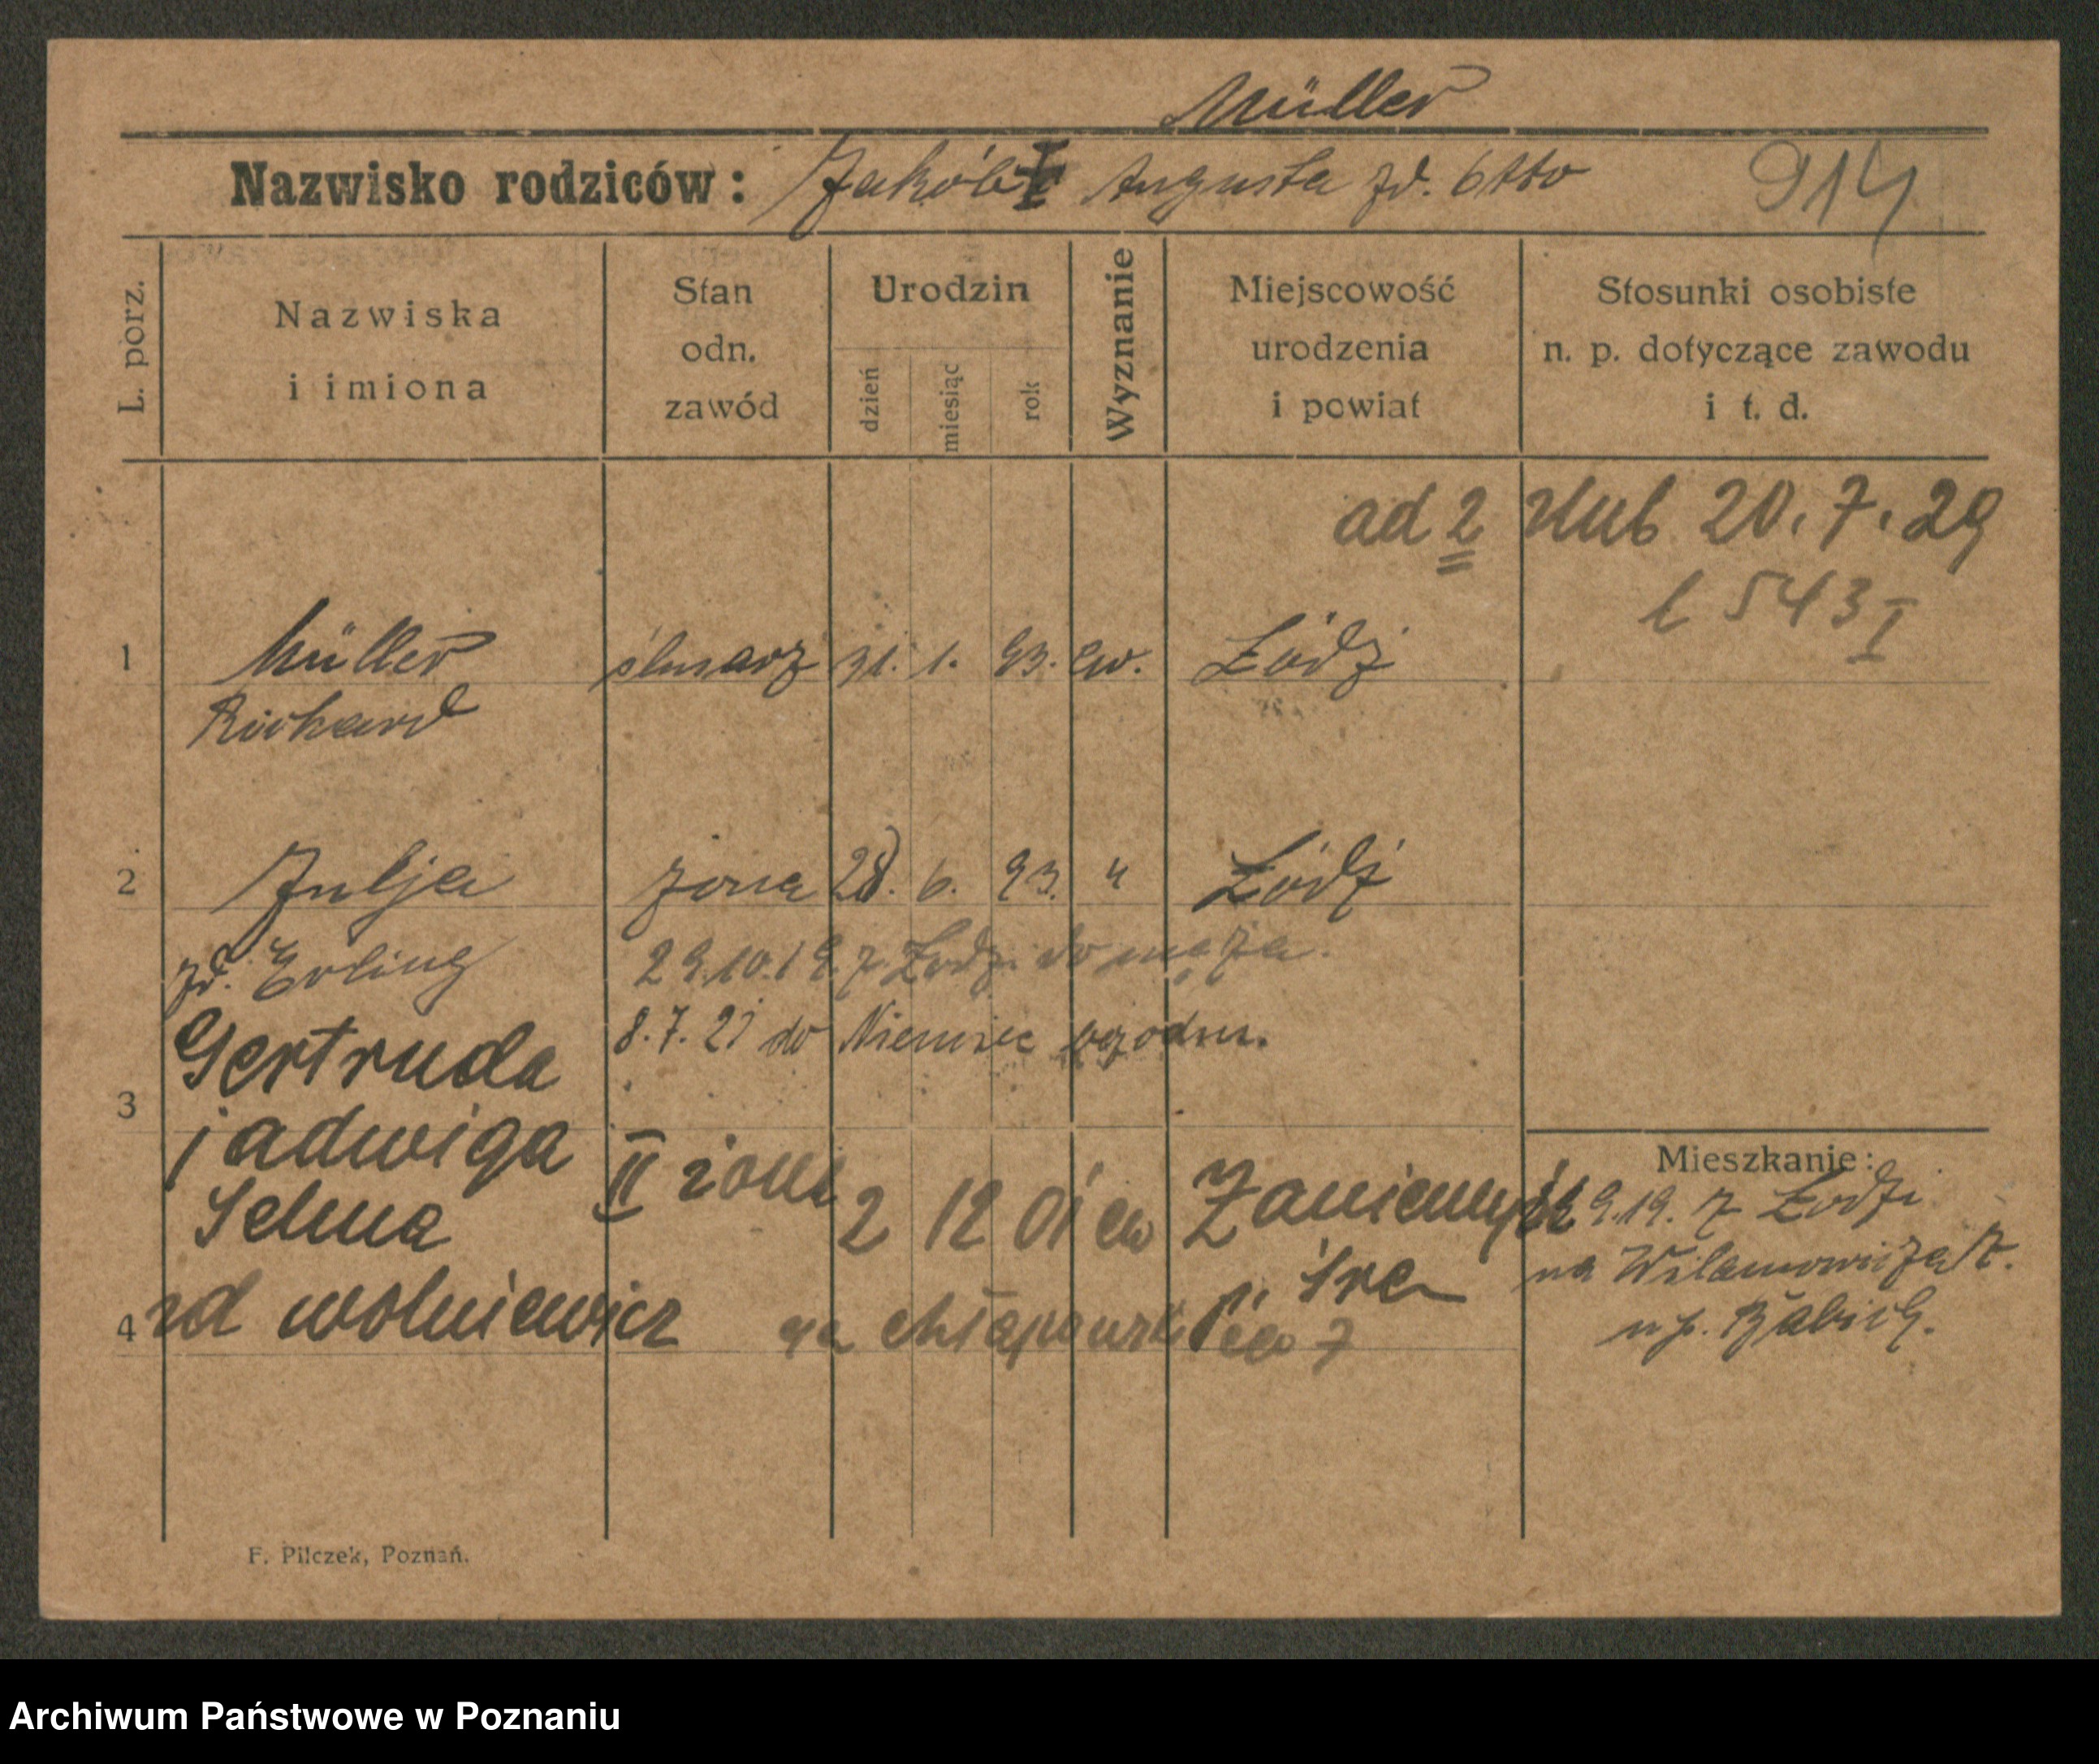 Müller
Nazwisko rodziców: Jakób I Augusta zd. Otto 914
L. porz.
Nazwiska
i imiona
Stan
odn.
zawód
Urodzin
dzień
miesiąc
rok
Wyznanie
Miejscowość
urodzenia
i powiat
Stosunki osobiste
n. p. dotyczące zawodu
i t. d.
ad 2 ślub 20. 7. 29
l 543 I
1 Müller ślusarz 31. 1. 93. ew. Łódź
Richard
2 Julja żona 28. 6. 93. " Łódź
zd. Erling 29.10.19. z Łodzi do męża.
Gertruda 8. 7. 21 do Niemiec
3
jadwiga
Mieszkanie:
Selma II żona 2 12 01 ew Zaniemyśl
9.19. z Łodzi
p. Śrem
na Wilamowicza
4 zd wolniewicz na chłapowskiego 7
u p. Babich.
F. Pilczek, Poznań.
Archiwum Państwowe w Poznaniu